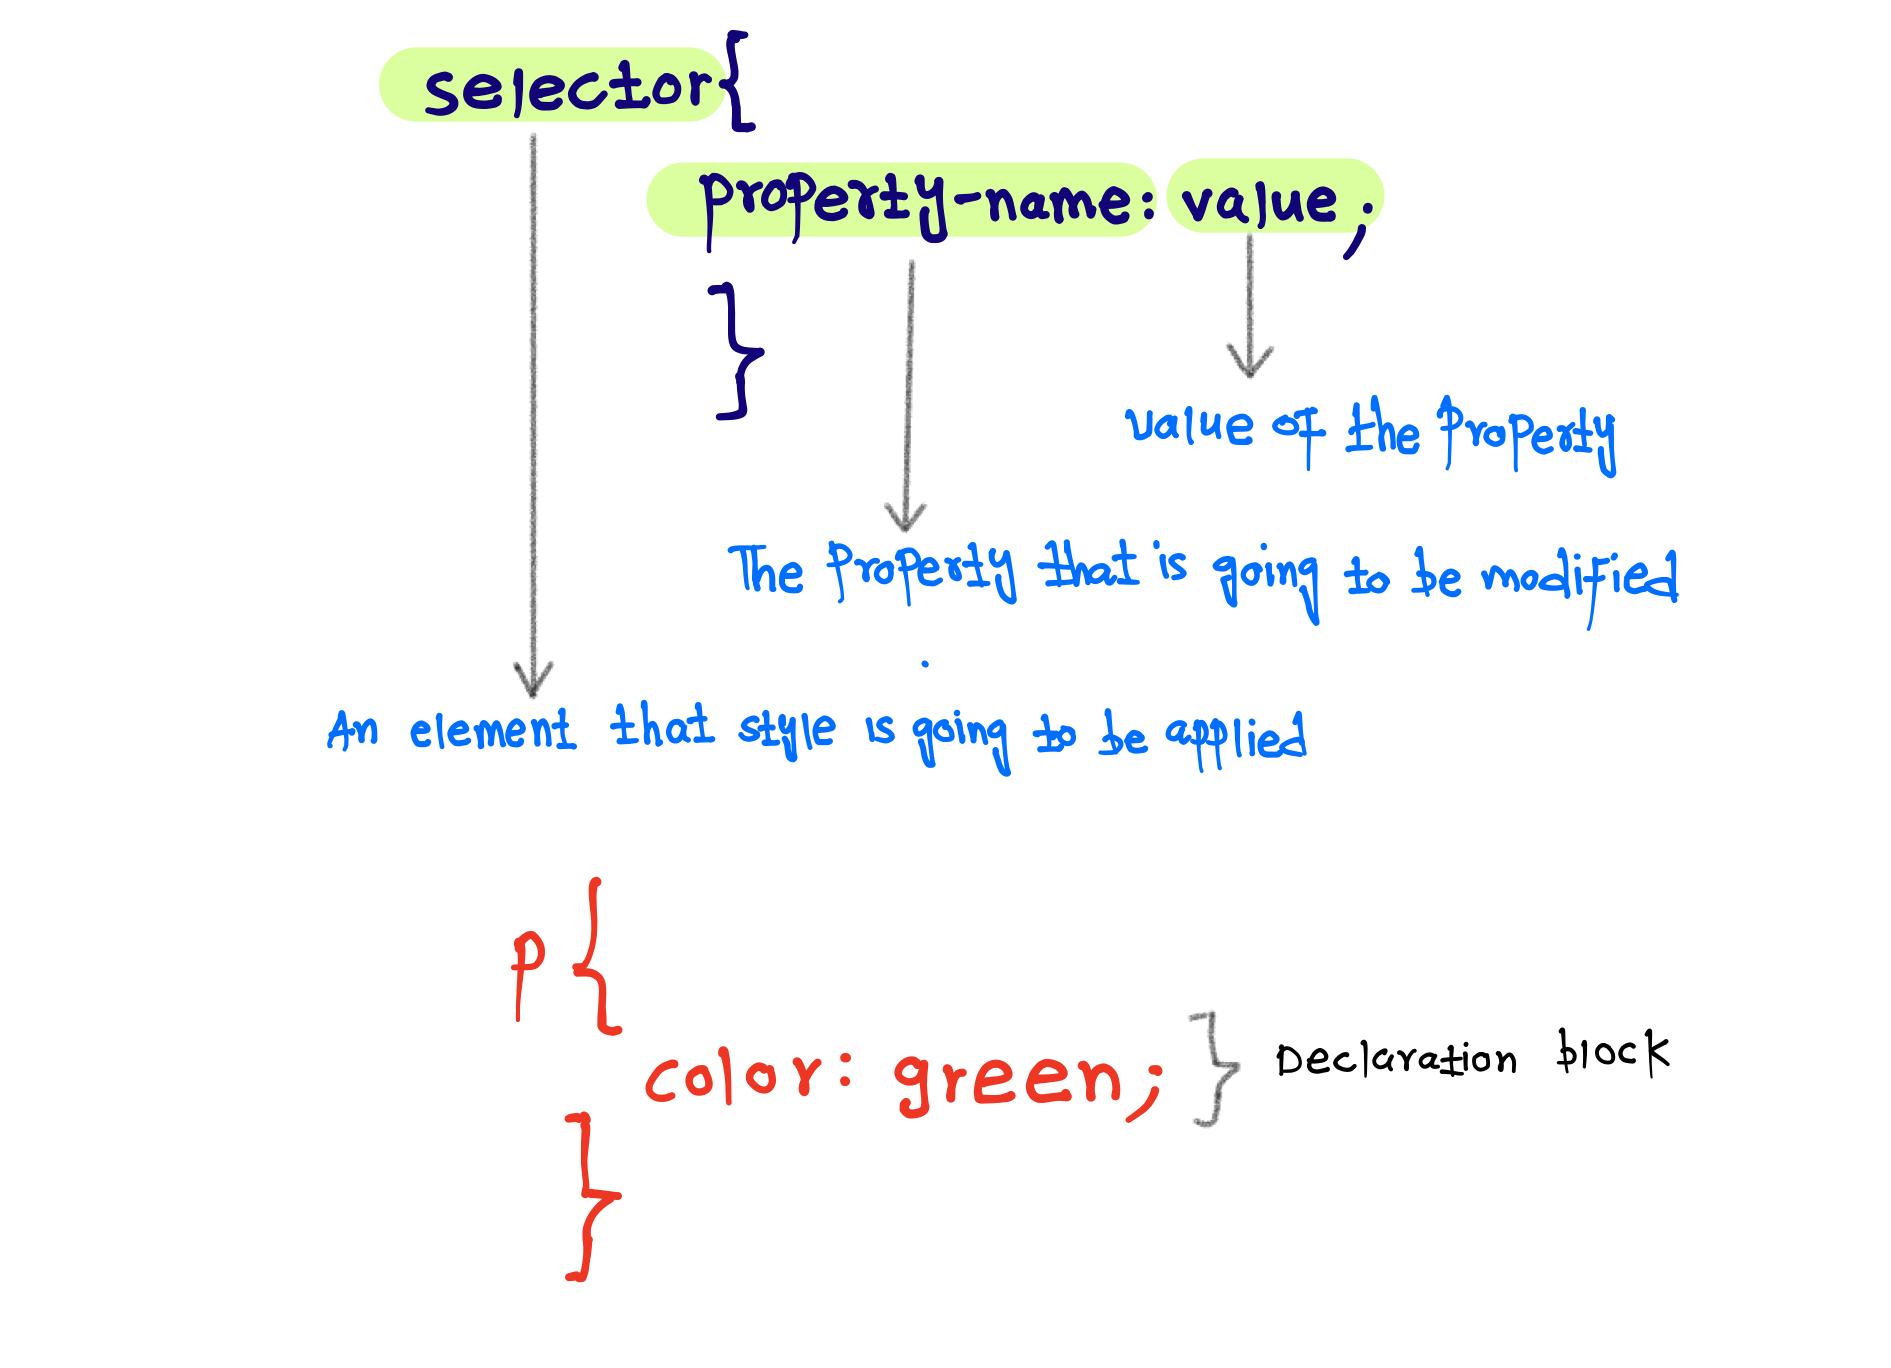 selector{
property-name: value;
}
value of the Property
The Property that is going to be modified
.
An element that style is going to be applied
p {
color: green; } Declaration block
}